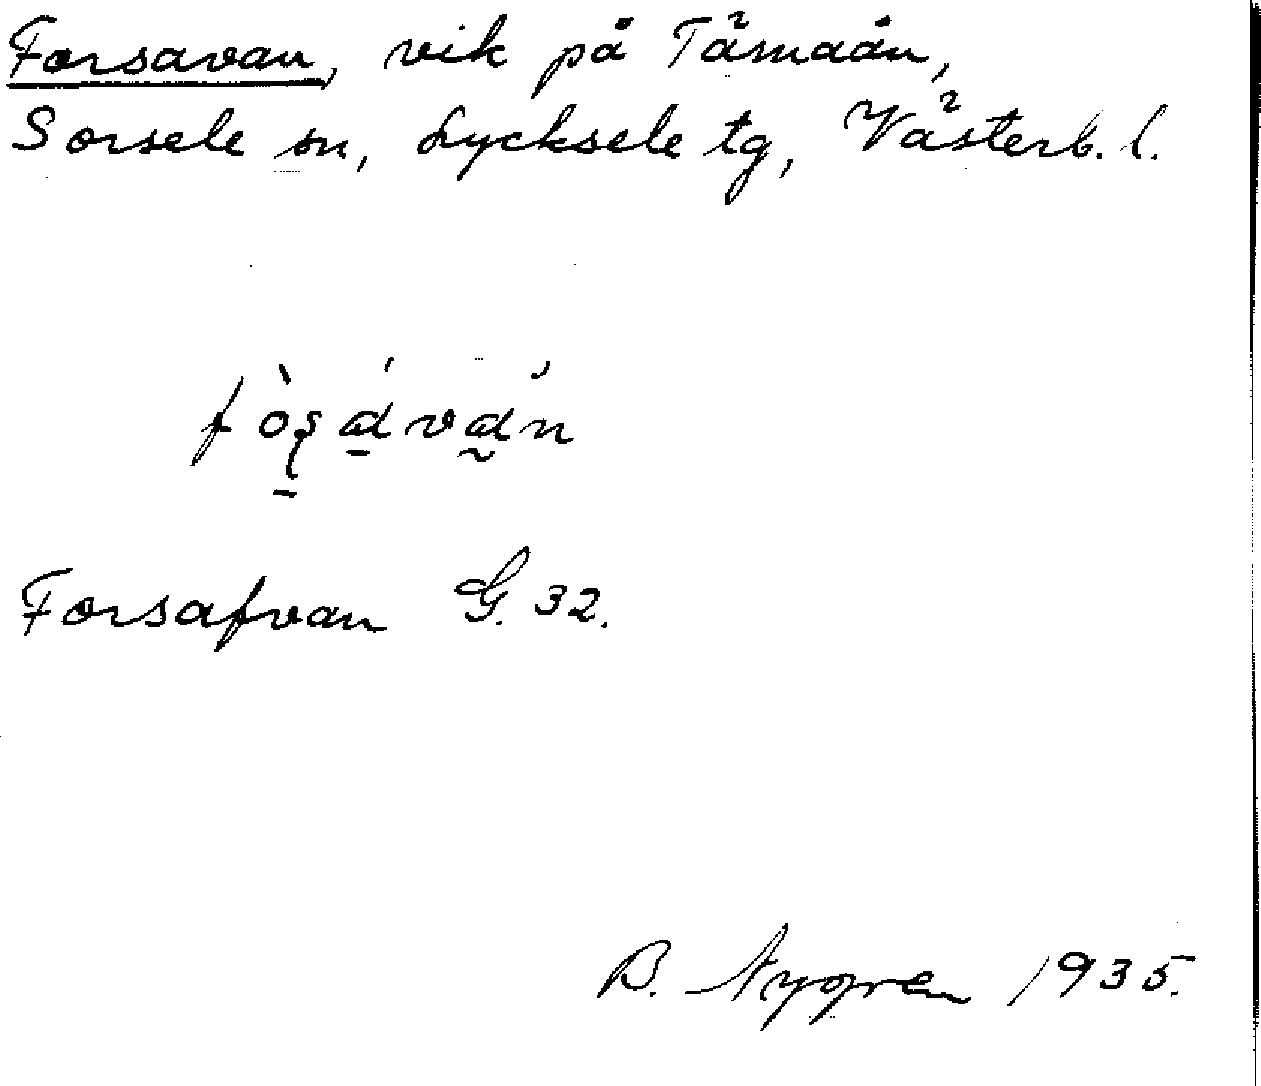 Forsavan, vik på Tärnaån,
Sorsele sn, Lycksele tg, Västerb. l.
Forsafvan G. 32.
B. Nygren 1935.